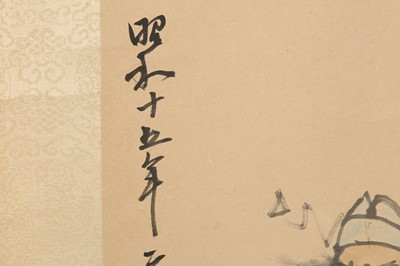 昭和十五年